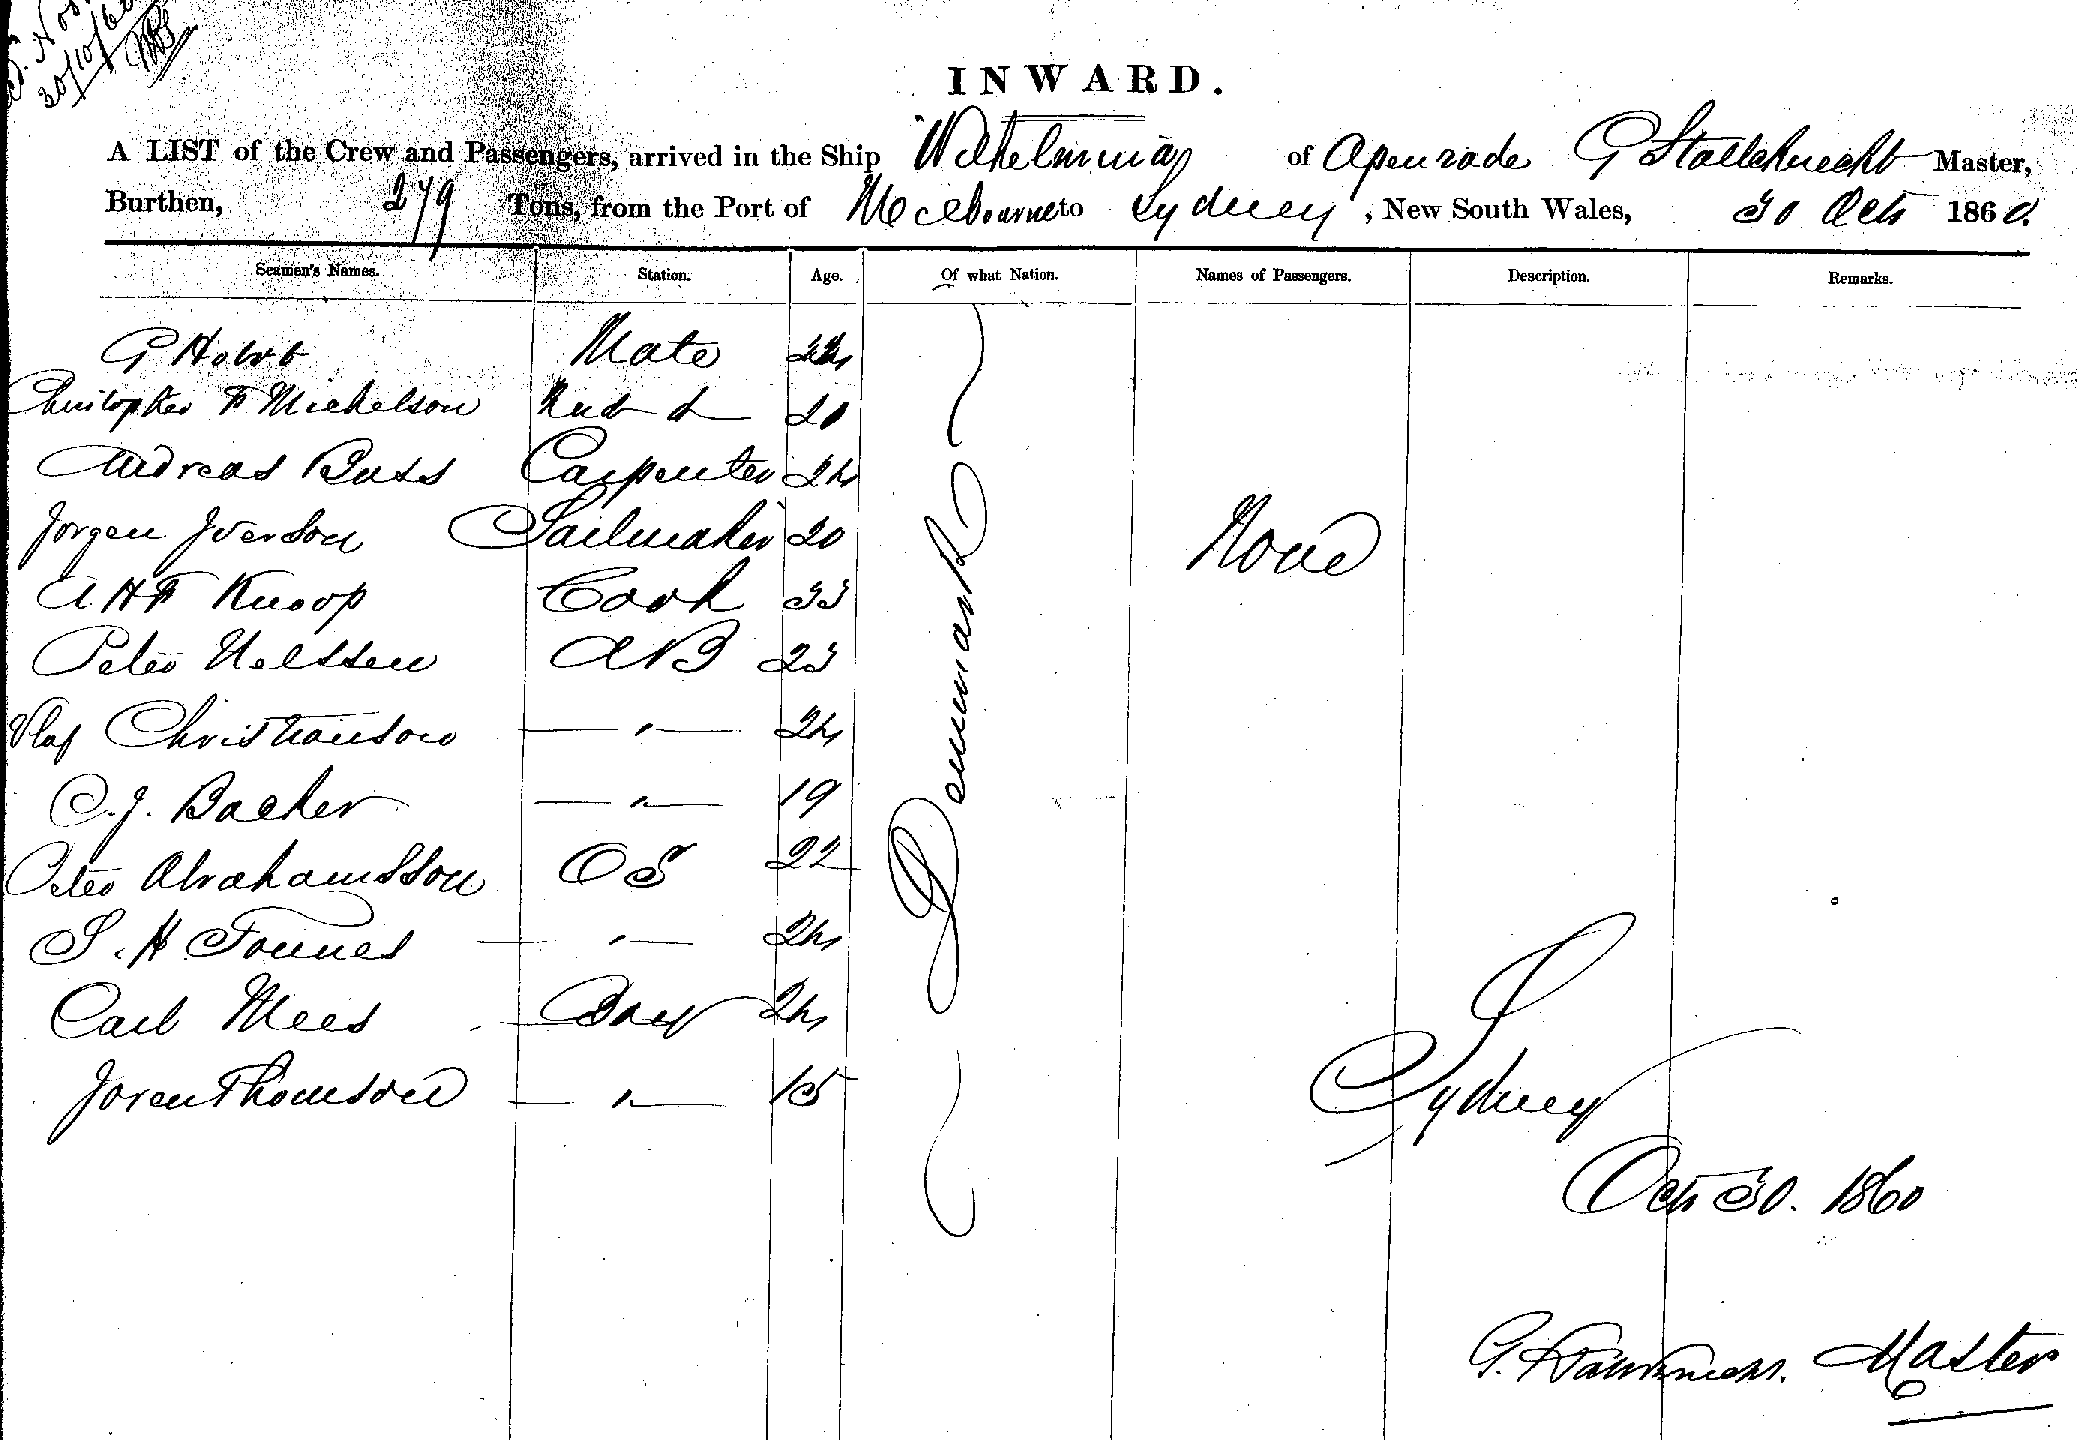 30/10/60
INWARD.
A LIST of the Crew and Passengers, arrived in the Ship Wilhelmina of Apenrade G Stallknecht Master,
Burthen, 279 Tons, from the Port of Melbourne to Sydney, New South Wales, 30 Oct 1860.
Seamen's Names. Station. Age. Of what Nation. Names of Passengers. Description. Remarks.
G Mate
Christopher F Mickelson 20
Andreas Buss Carpenter 24
Jorgen Iverson Sailmaker 20
A H F Knoop Cook 33
Peter Nelssen AB 23
Olaf Christianson — " — 24
C. J. Backer — " — 19
Peter Abrahamsson OS 22
S. H Tonnes — " — 24
Carl Mees Boy 24
Joren Thomson — " — 15
Denmark
None
Sydney
Oct 30. 1860
G. Stallknecht. Master